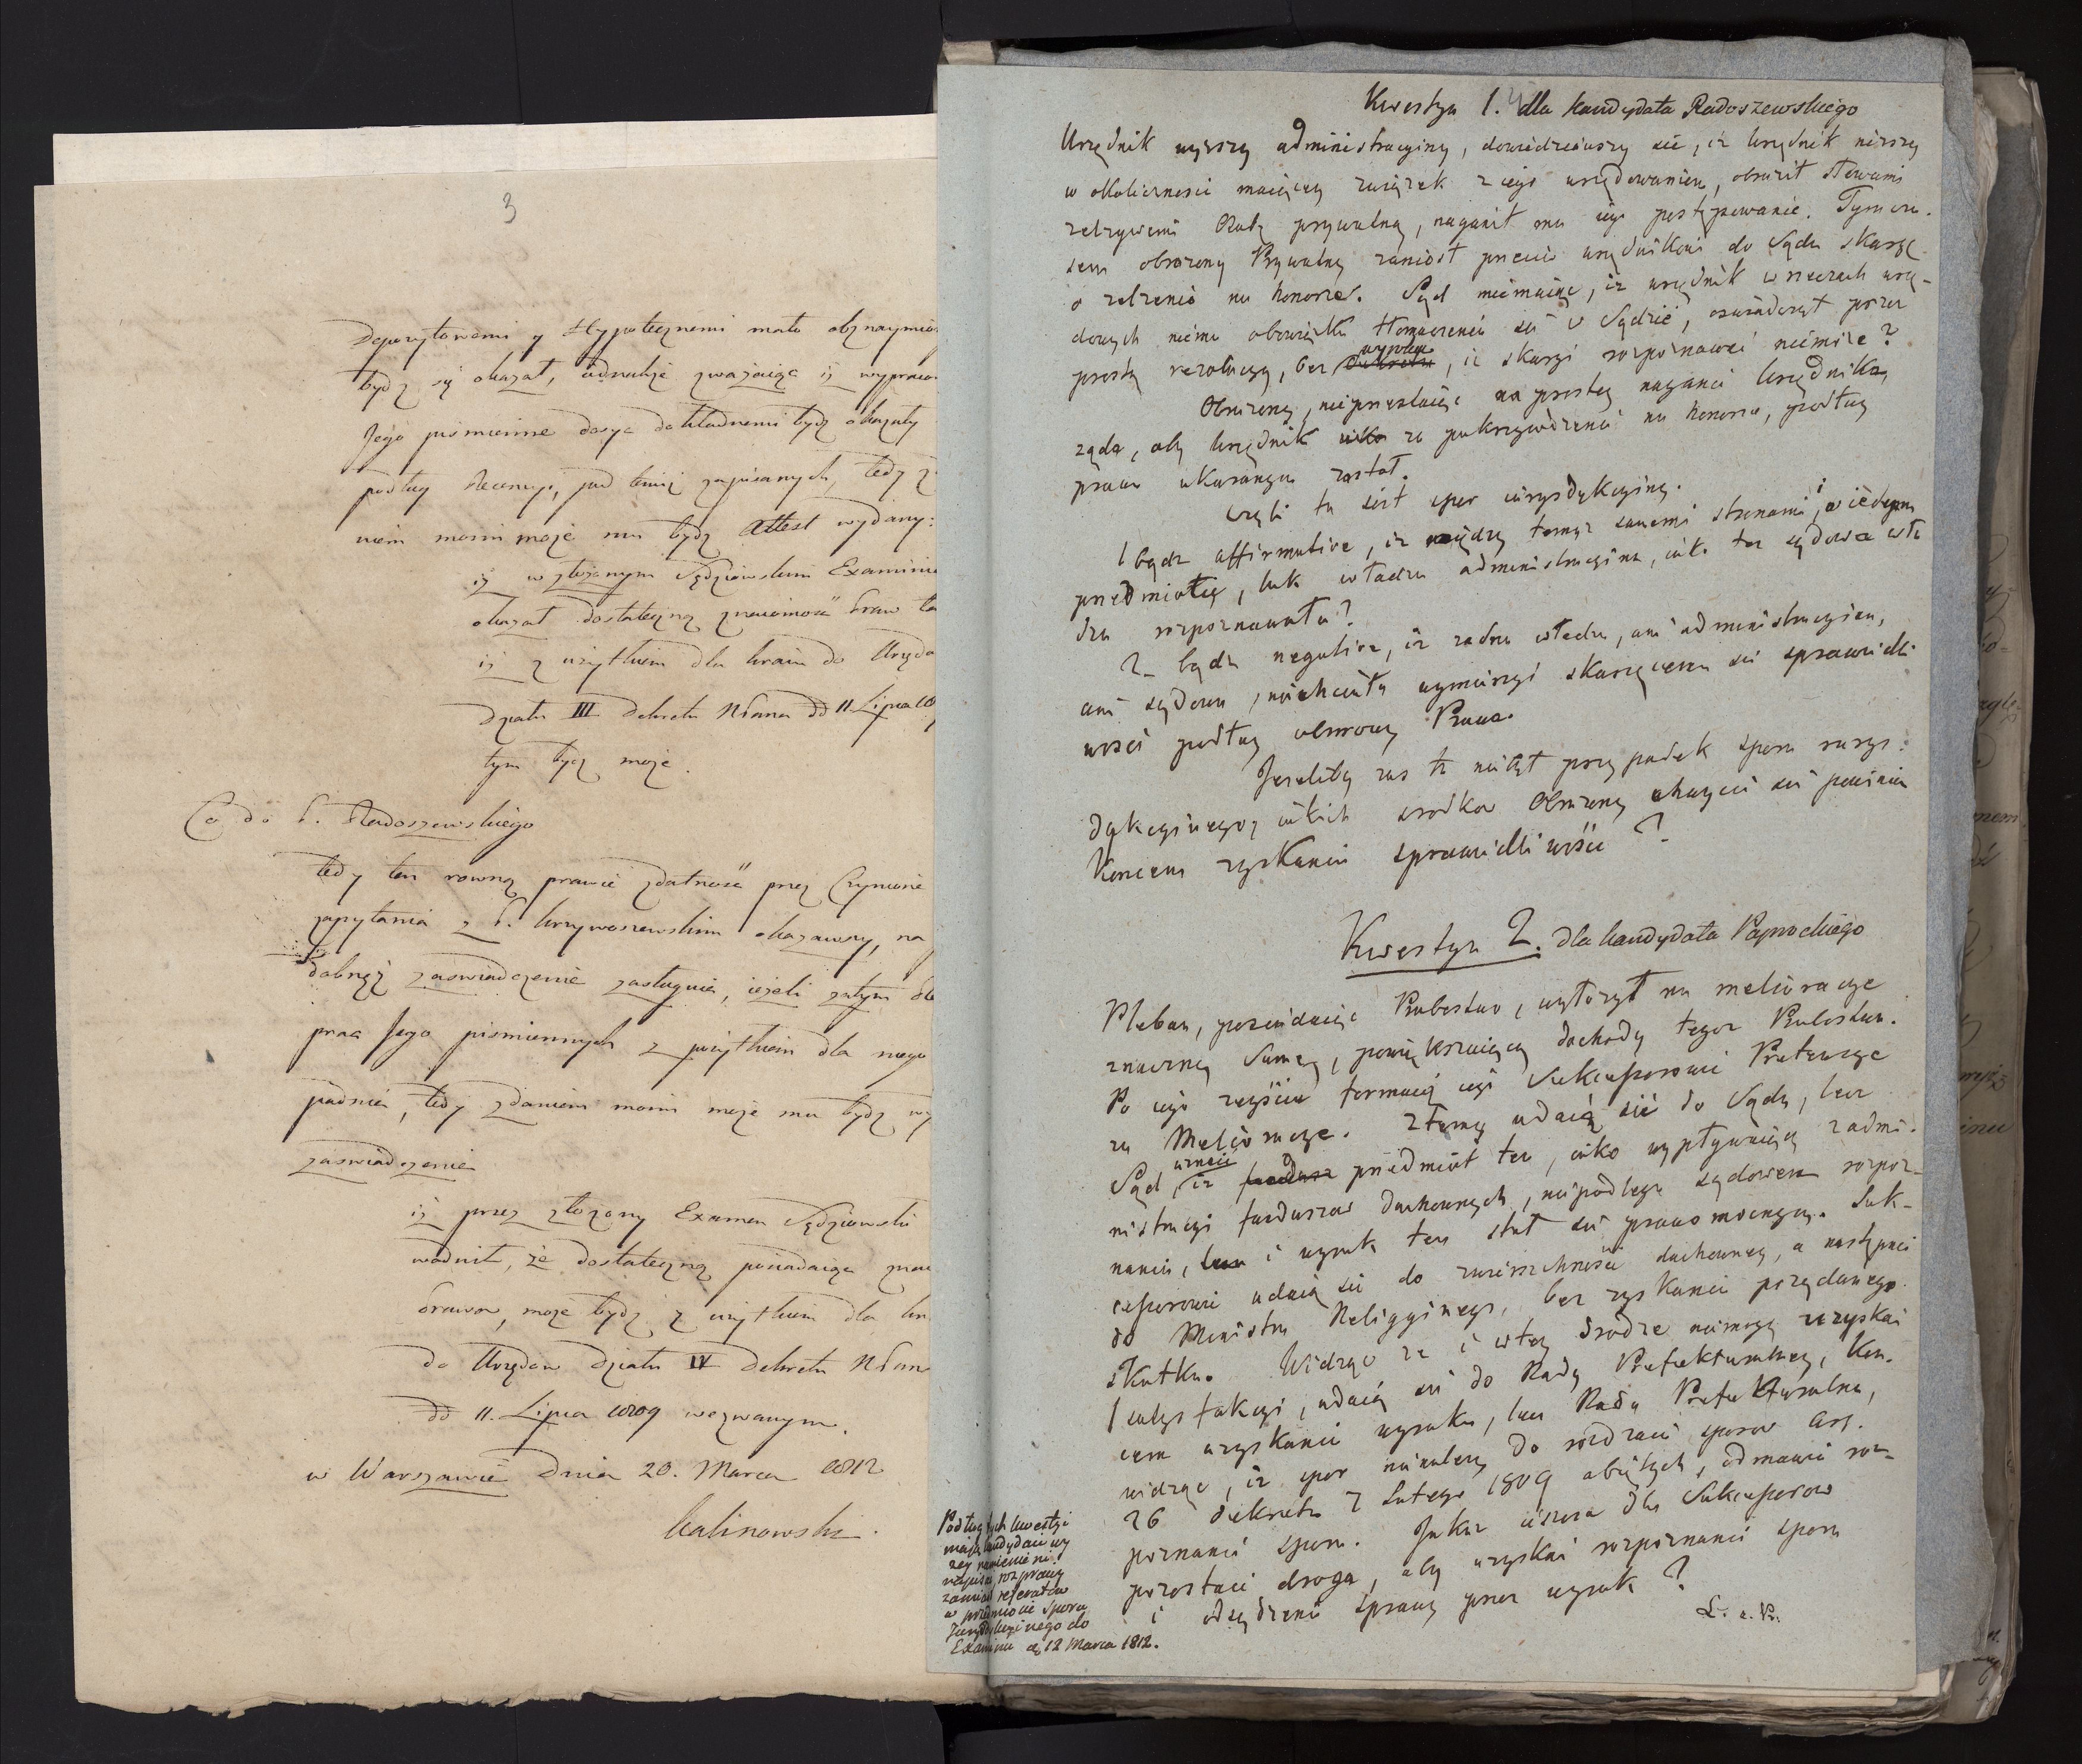 3
Depozytowemi y Hypotecznemi mało obznaymio
bydź się okazał, iednakże zważaiąc iż wypraco
Jego piśmienne dosyć dokładnemi bydź okazały
podług Recenzyi, pod temiż zapisanych, tedy z
niem moim może mu bydź Attest wydany:
iż w złożonym Sędziowskim Examinie
okazał dostateczną znaiomość Praw
iż z użytkiem dla kraiu do Urzędo
działu III Dekretu N Pana dd 11. Lipca
tym bydź może.
Co do P. Radoszewskiego
tedy ten równą prawie zdatność przez Czynione
zapytania z P. Krzywoszewskim okazawszy, na
dobreż zaświadczenie zasługuie, ieżeli zatym
prac Jego piśmiennych z pożytkiem dla niego
padnie, tedy zdaniem moim może mu bydź wy
zaświadczenie
iż przez złożony Examen Sędziowski
wodnił, że dostateczną posiadaiąc
Prawa, może bydź z użytkiem dla
do Urzędow działu IV Dekretu N Pana
dd 11. Lipca 1809 wezwanym.
w Warszawie Dnia 20. Marca 1812
Kalinowski.
Kwestya 1. dla kandydata Radoszewskiego
Urzędnik wyższy administracyiny, dowiedziawszy sie, iż Urzędnik niższy
w okoliczności maiącey związek z iego urzędowaniem, obraził słowami
zelżywemi Osobę prywatną, naganił mu iego postępowanie. Tymcza-
sem obrażony Prywatny zaniósł przeciw urzędnikowi do Sądu skargę
o zelżenie na honorze. Sąd mniemaiąc, iż urzędnik w rzeczach urzę-
dowych niema obowiązku tłomaczenia się w Sądzie, oświadczył przez
prostą rezolucyą, bez wyroku, iż skargi rozpoznawać niemoże?
Obrażony, nieprzestaiąc na prostey naganie Urzędnika,
żąda, aby Urzędnik za pokrzywdzenie na honorze, podług
prawa ukaranym został.
Czyli tu iest spor iurysdykcyiny.
1 bądź affirmative, iż między temiż samemi stronami, i w iednym
przedmiocie, tak władza administracyina, iako też sądowa wła
dza rozpoznawała?
2 bądź negative, iż żadna władza, ani administracyina,
ani sądowa, niechciała wymierzyć skarżącemu się sprawiedli
wości podług obmowy Prawa.
Jeżeliby zaś to niebył przypadek sporu iurys-
dykcyinego, iakich srodków Obrażony chwycić się powinien
Koncem zyskania sprawiedliwości?
Kwestya 2. dla kandydata Paprockiego
Pleban, posiadaiąc Probostwo, wyłożył na melioracye
znaczną Summę, powiększaiącą dochody tegoż Probostwa.
Po iego zeyściu formuią iego Sukcessorowie Pretensye
za Melioracye. Z temi udaią się do Sądu, lecz
Sąd uznaie iż przedmiot ten, iako wypływaiący z admi-
nistracyi funduszow duchownych, niepodlega sądowemu rozpoz-
naniu, i wyrok ten stał się prawomocnym. Suk-
cessorowie udaią się do zwierzchności duchowney, a następnie
do Ministra Religiynego, bez zyskania pożądanego
skutku. Widząc że i w tey drodze niemogą uzyskać
satysfakcyi, udaią się do Rady Prefekturalney, Kon-
cem uzyskania wyroku, lecz Rada Prefekturalna,
widząc, iż spor nienależy do rzędu sporow Art.
26 dekretu 7 Lutego 1809 obiętych, odmawia roz-
poznania sporu. Jakaż ieszcze dla Sukcessorow
pozostaie droga, aby uzyskać rozpoznanie sporu
i osądzenie sprawy przez wyrok?
Podług tych kwestyi
maią kandydaci wy
żey wymienieni
napisać rozprawy
zamiast referatów
w przedmiocie Sporu
Jurysdykcyinego do
Examinu d. 12 Marca 1812.